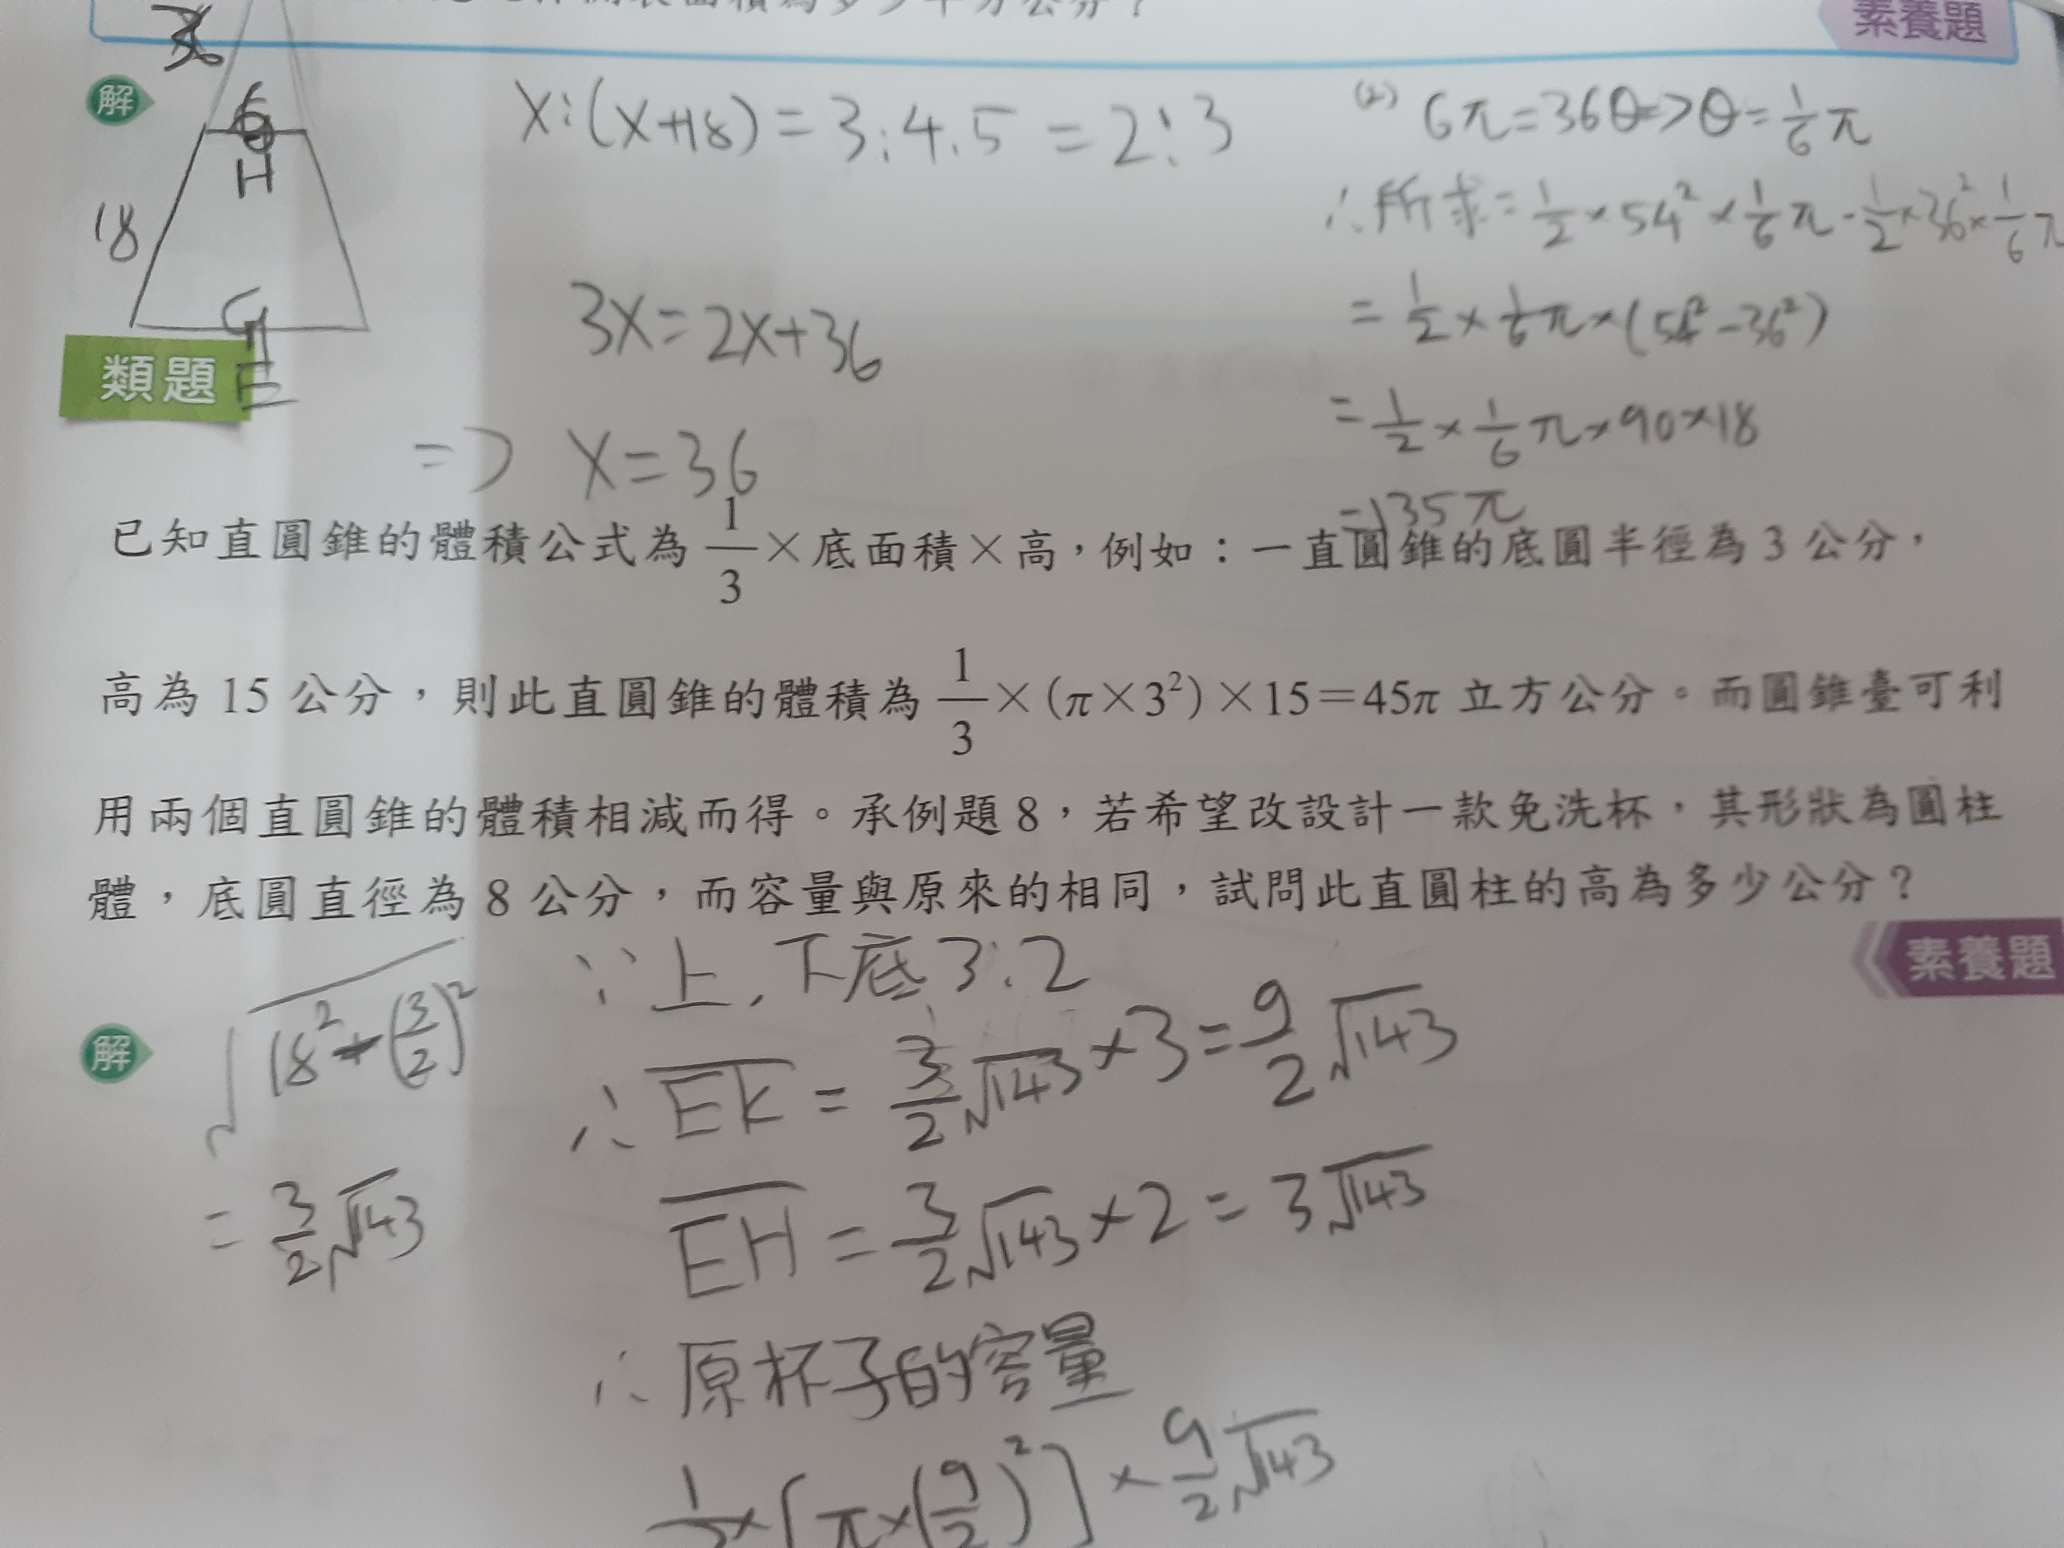 素養題
解
X:(X+18)=3:4.5=2:3
(2) 6π=36θ=>θ=1/6π
18
∴所求=1/2×54²×1/6π-1/2×36²×1/6π
3X=2X+36
=1/2×1/6π×(54²-36²)
類題
=> X=36
=1/2×1/6π×90×18
=135π
已知直圓錐的體積公式為1/3×底面積×高，例如：一直圓錐的底圓半徑為3公分，
高為15公分，則此直圓錐的體積為1/3×(π×3²)×15=45π立方公分。而圓錐臺可利
用兩個直圓錐的體積相減而得。承例題8，若希望改設計一款免洗杯，其形狀為圓柱
體，底圓直徑為8公分，而容量與原來的相同，試問此直圓柱的高為多少公分？
素養題
解
∵上、下底3:2
√18²-(3/2)²
∴EK=3/2√143×3=9/2√143
=3/2√143
EH=3/2√143×2=3√143
∴原杯子的容量
1/3×[π×(9/2)²]×9/2√143